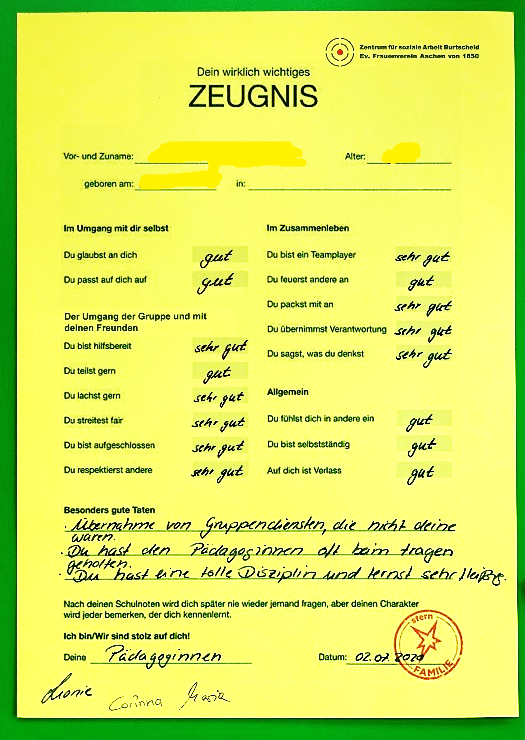 Zentrum für soziale Arbeit Burtscheid
Ev. Frauenverein Aachen von 1850
Dein wirklich wichtiges
ZEUGNIS
Vor- und Zuname: Alter:
geboren am: in:
Im Umgang mit dir selbst
Du glaubst an dich gut
Du passt auf dich auf gut
Der Umgang der Gruppe und mit
deinen Freunden
Du bist hilfsbereit sehr gut
Du teilst gern gut
Du lachst gern sehr gut
Du streitest fair sehr gut
Du bist aufgeschlossen sehr gut
Du respektierst andere sehr gut
Im Zusammenleben
Du bist ein Teamplayer sehr gut
Du feuerst andere an gut
Du packst mit an sehr gut
Du übernimmst Verantwortung sehr gut
Du sagst, was du denkst sehr gut
Allgemein
Du fühlst dich in andere ein gut
Du bist selbstständig gut
Auf dich ist Verlass gut
Besonders gute Taten
· Übernahme von Gruppendiensten, die nicht deine
waren.
· Du hast den Pädagoginnen oft beim tragen
geholfen.
· Du hast eine tolle Disziplin und lernst sehr fleißig.
Nach deinen Schulnoten wird dich später nie wieder jemand fragen, aber deinen Charakter
wird jeder bemerken, der dich kennenlernt.
Ich bin/Wir sind stolz auf dich!
Deine Pädagoginnen Datum: 02.07.2020
stern
FAMILIE
Leonie Corinna Maria